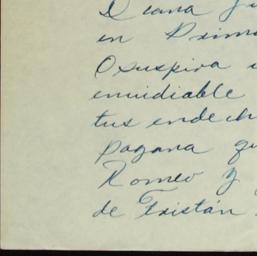 Diana
en Prima
O suspira
envidiable
tus endech
pagana qu
Romeo y
de Tristán